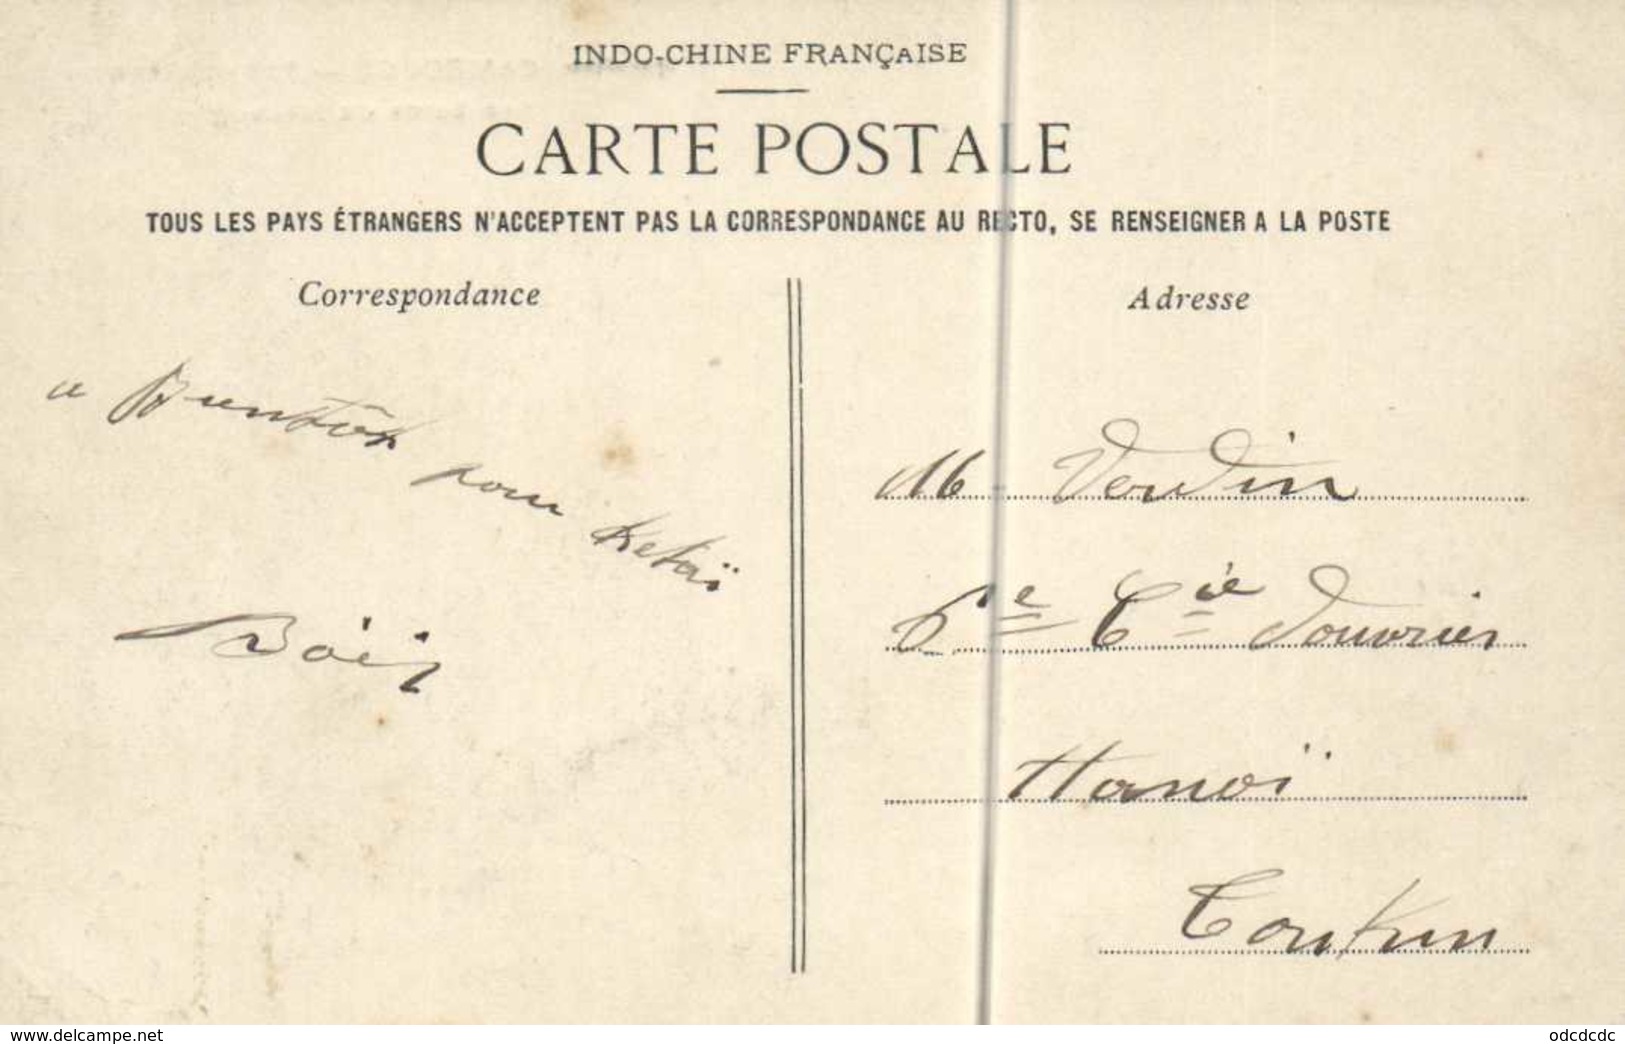 INDO-CHINE FRANÇAISE
CARTE POSTALE
TOUS LES PAYS ÉTRANGERS N'ACCEPTENT PAS LA CORRESPONDANCE AU RECTO, SE RENSEIGNER A LA POSTE
Correspondance
a
pour
Adresse
Verdin
6e Cie d'ouvriers
Hanoï
Tonkin
www.delcampe.net
odcdcdc